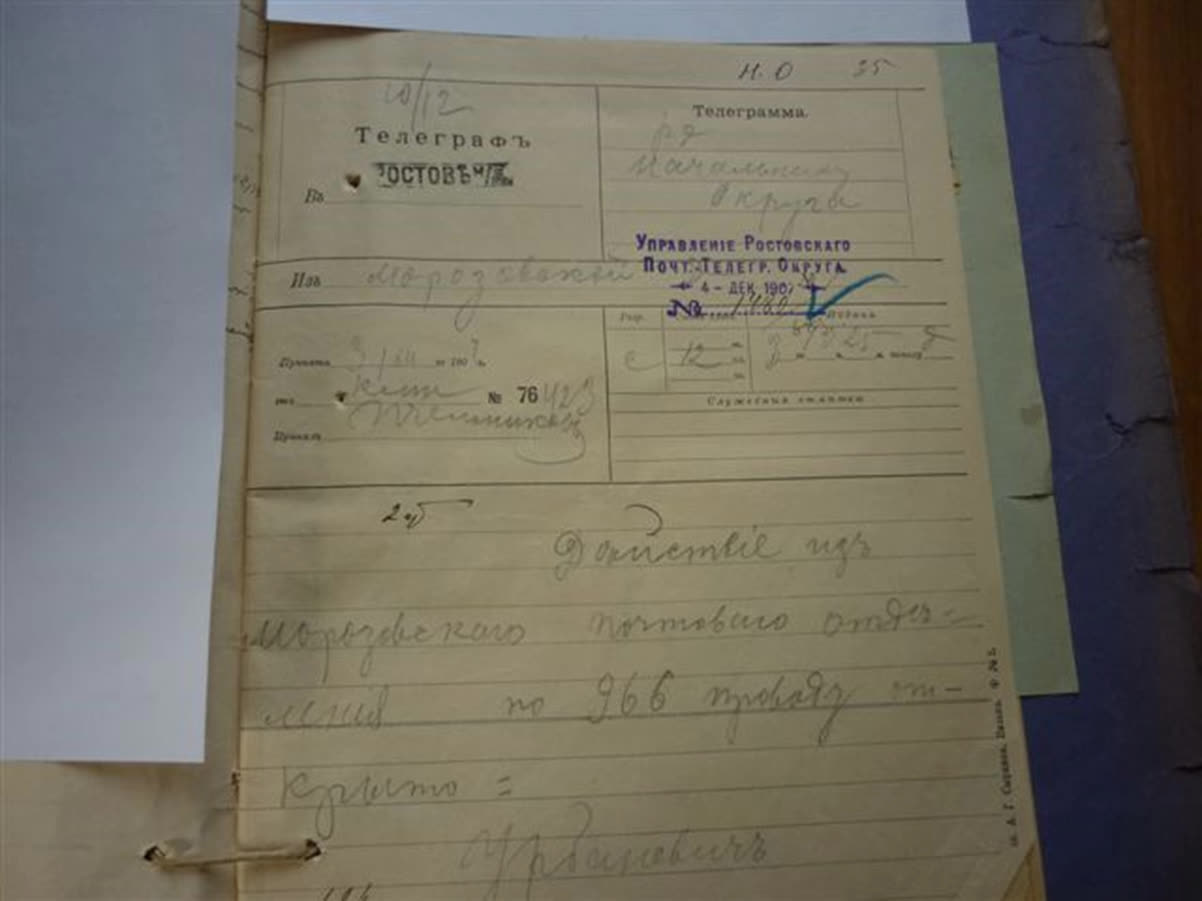 Н. О 25
10/12
Телеграфъ
Въ РОСТОВЪ Н/Д
Телеграмма.
Начальнику
Округа
УПРАВЛЕНІЕ РОСТОВСКАГО
ПОЧТ.-ТЕЛЕГР. ОКРУГА.
4 - ДЕК. 190
№ 1482
Изъ Морозовской
Принята 3/XII 190 г.
№ 76 423
Принялъ
12
Подана
Служебныя отмѣтки
Дѣйствіе изъ
Морозовскаго почтоваго отдѣ-
ленія по 966 проводу от-
крыто =
Урбановичъ